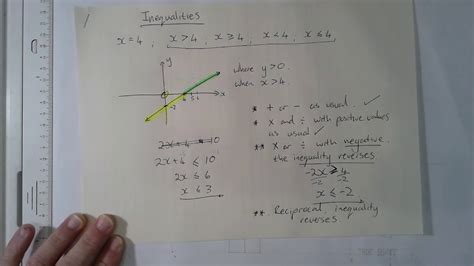 1
Inequalities
x = 4 , x > 4 , x ≥ 4 , x < 4 , x ≤ 4
y
x
-2
where y > 0.
when x > 4.
* + or - as usual. ✓
* × and ÷ with positive values
as usual ✓
** × or ÷ with negative
the inequality reverses
-2x ≥ 4
-2 -2
x ≤ -2
** Reciprocal, inequality
reverses.
2x + 4 ≤ 10
2x ≤ 6
x ≤ 3